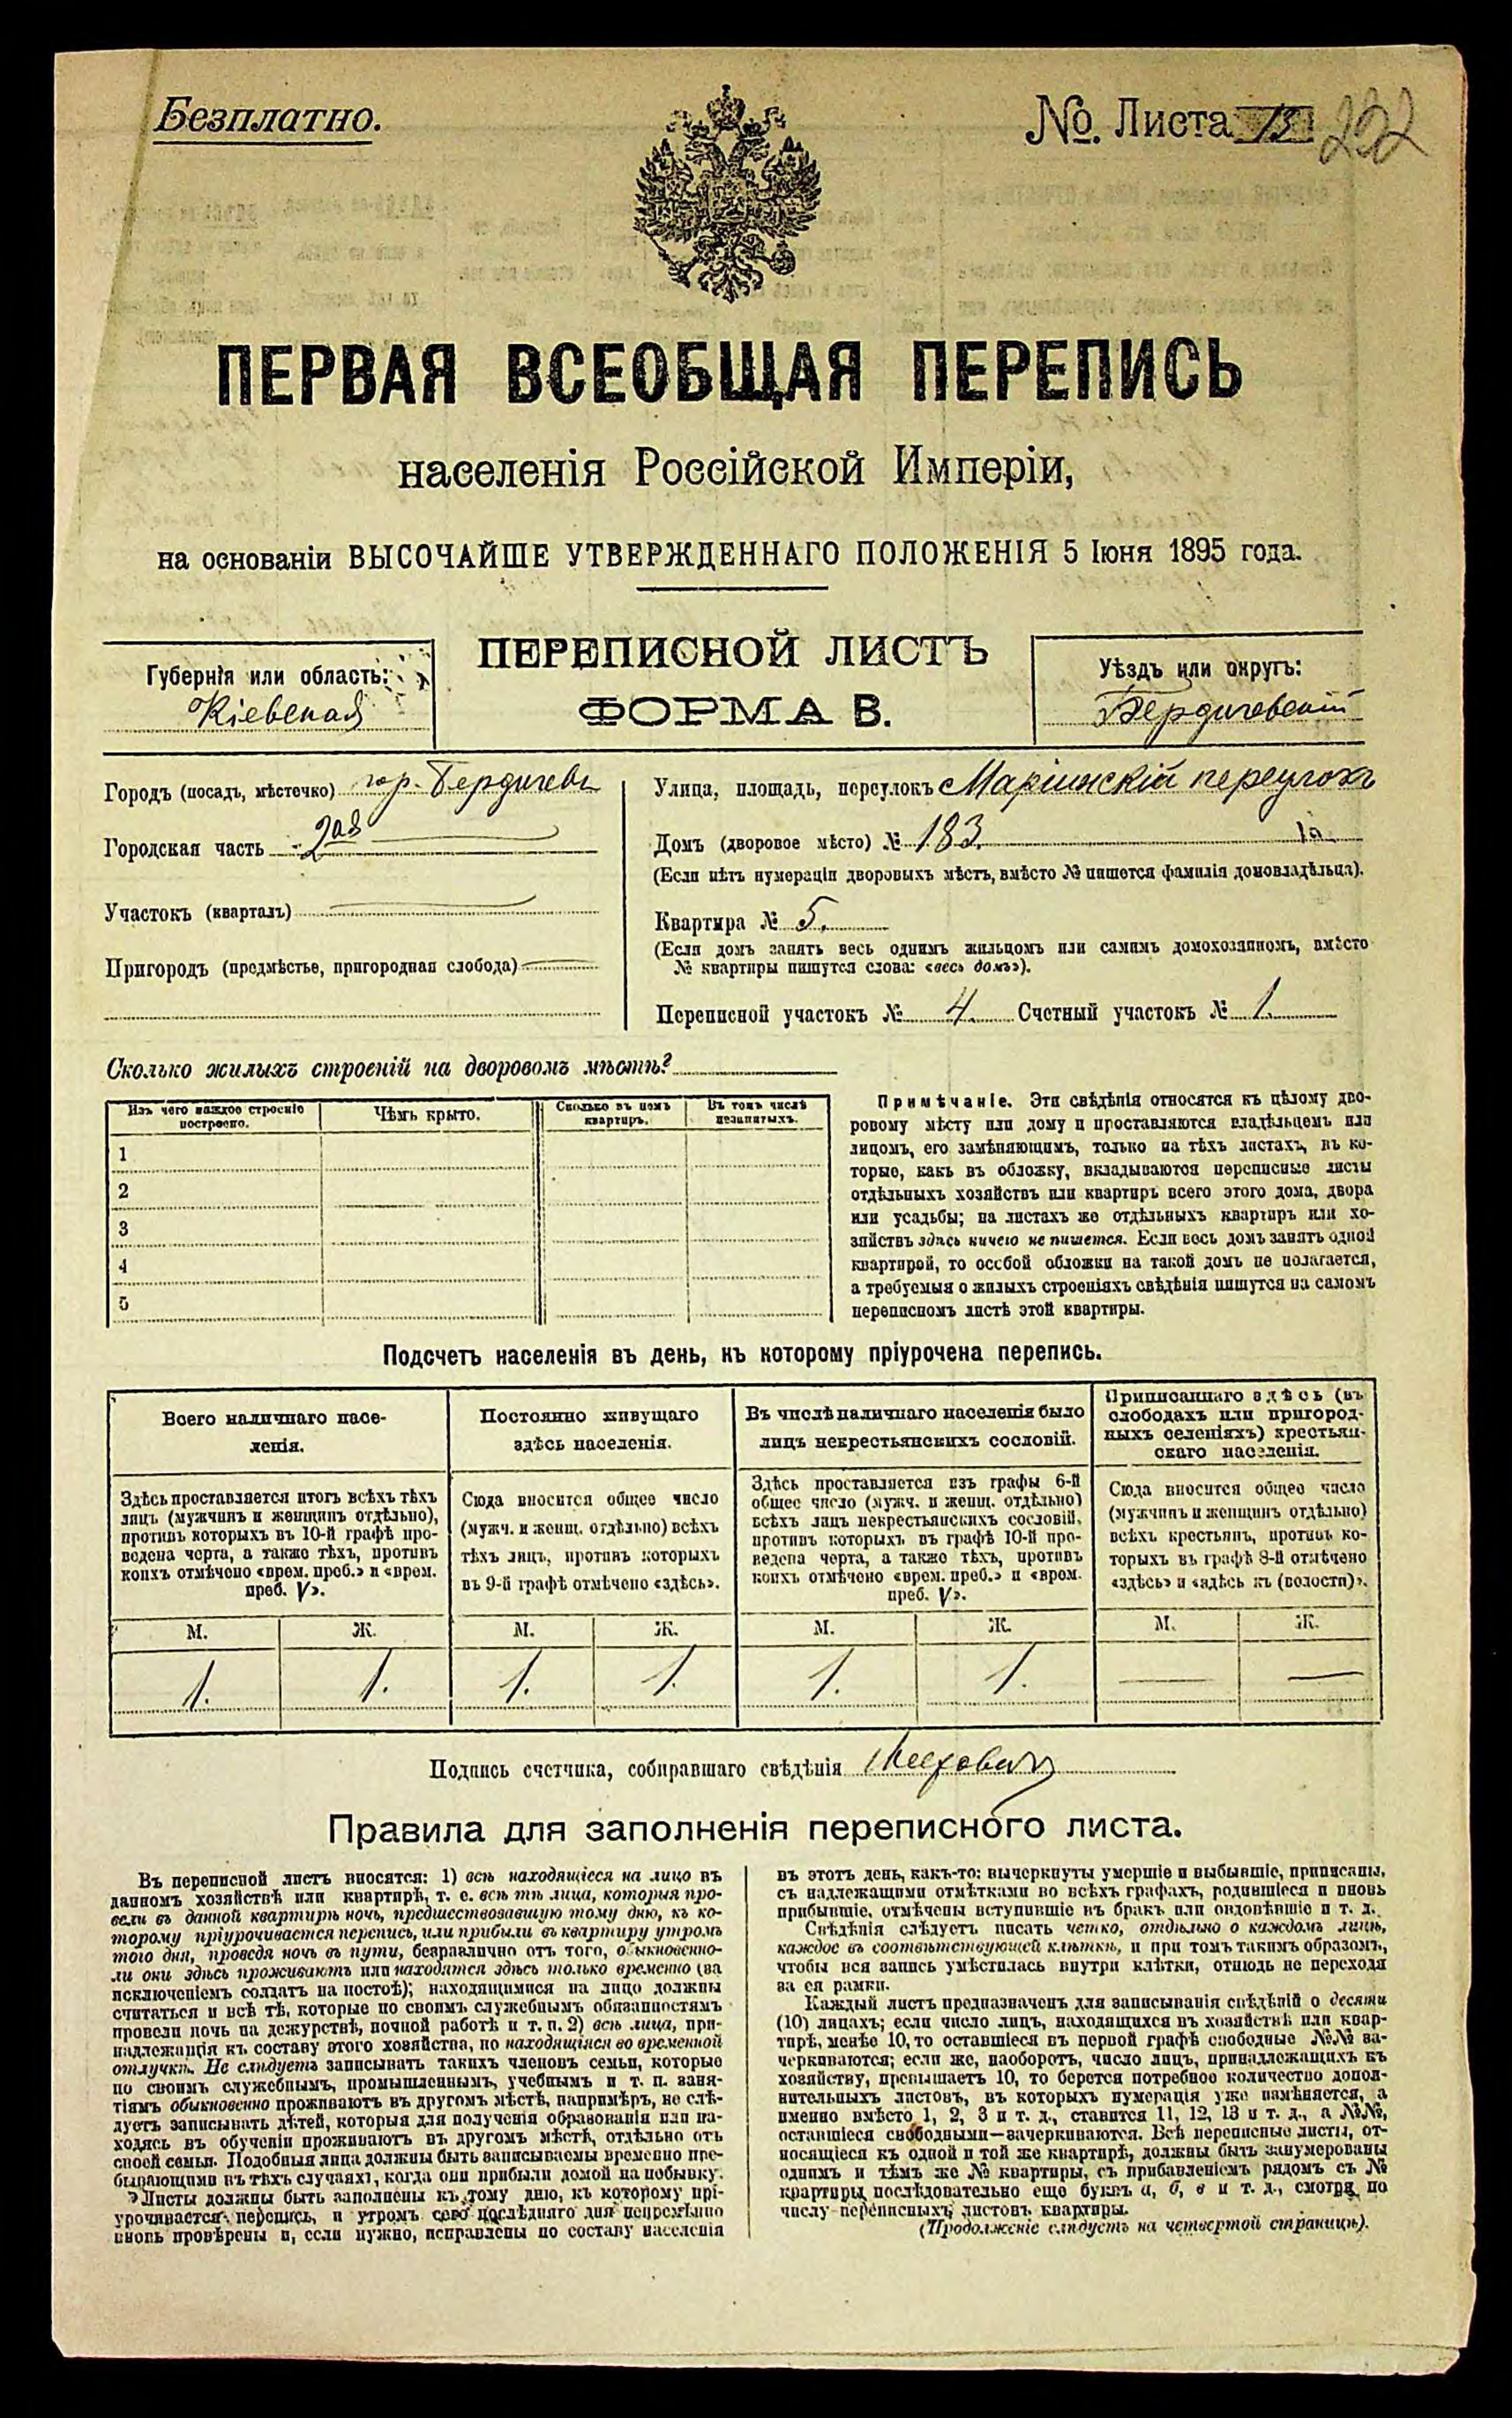 Безплатно.
№. Листа 13 222
ПЕРВАЯ ВСЕОБЩАЯ ПЕРЕПИСЬ
населенія Россійской Имперіи,
на основаніи ВЫСОЧАЙШЕ УТВЕРЖДЕННАГО ПОЛОЖЕНІЯ 5 Іюня 1895 года.
Губернія или область:
Кіевская
ПЕРЕПИСНОЙ ЛИСТЪ
ФОРМА В.
Уѣздъ или округъ:
Бердичевскій
Городъ (посадъ, мѣстечко) гор. Бердичевъ
Городская часть 2ая
Участокъ (кварталъ)
Пригородъ (предмѣстье, пригородная слобода)
Улица, площадь, переулокъ Маріинскій переулокъ
Домъ (дворовое мѣсто) № 183.
(Если нѣтъ нумераціи дворовыхъ мѣстъ, вмѣсто № пишется фамилія домовладѣльца).
Квартира № 5.
(Если домъ занятъ весь однимъ жильцомъ или самимъ домохозяиномъ, вмѣсто
№ квартиры пишутся слова: «весь домъ»).
Переписной участокъ № 4. Счетный участокъ № 1.
Сколько жилыхъ строеній на дворовомъ мѣстѣ?
Изъ чего каждое строеніе
построено.
Чѣмъ крыто.
Сколько въ немъ
квартиръ.
Въ томъ числѣ
незанятыхъ.
1
2
3
4
5
Примѣчаніе. Эти свѣдѣнія относятся къ цѣлому дво-
ровому мѣсту или дому и проставляются владѣльцемъ или
лицомъ, его замѣняющимъ, только на тѣхъ листахъ, въ ко-
торые, какъ въ обложку, вкладываются переписные листы
отдѣльныхъ хозяйствъ или квартиръ всего этого дома, двора
или усадьбы; на листахъ же отдѣльныхъ квартиръ или хо-
зяйствъ здѣсь ничего не пишется. Если весь домъ занятъ одной
квартирой, то особой обложки на такой домъ не полагается,
а требуемыя о жилыхъ строеніяхъ свѣдѣнія пишутся на самомъ
переписномъ листѣ этой квартиры.
Подсчетъ населенія въ день, къ которому пріурочена перепись.
Всего наличнаго насе-
ленія.
Здѣсь проставляется итогъ всѣхъ тѣхъ
лицъ (мужчинъ и женщинъ отдѣльно),
противъ которыхъ въ 10-й графѣ про-
ведена черта, а также тѣхъ, противъ
коихъ отмѣчено «врем. преб.» и «врем.
преб. V».
Постоянно живущаго
здѣсь населенія.
Сюда вносится общее число
(мужч. и женщ. отдѣльно) всѣхъ
тѣхъ лицъ, противъ которыхъ
въ 9-й графѣ отмѣчено «здѣсь».
Въ числѣ наличнаго населенія было
лицъ некрестьянскихъ сословій.
Здѣсь проставляется изъ графы 6-й
общее число (мужч. и женщ. отдѣльно)
всѣхъ лицъ некрестьянскихъ сословій,
противъ которыхъ въ графѣ 10-й про-
ведена черта, а также тѣхъ, противъ
коихъ отмѣчено «врем. преб.» и «врем.
преб. V».
Приписаннаго здѣсь (въ
слободахъ или пригород-
ныхъ селеніяхъ) крестьян-
скаго населенія.
Сюда вносится общее число
(мужчинъ и женщинъ отдѣльно)
всѣхъ крестьянъ, противъ ко-
торыхъ въ графѣ 8-й отмѣчено
«здѣсь» и «здѣсь къ (волости)».
М. Ж. М. Ж. М. Ж. М. Ж.
1. 1. 1. 1. 1. 1. — —
Подпись счетчика, собиравшаго свѣдѣнія
Правила для заполненія переписного листа.
Въ переписной листъ вносятся: 1) всѣ находящіеся на лицо въ
данномъ хозяйствѣ или квартирѣ, т. е. всѣ тѣ лица, которыя про-
вели въ данной квартирѣ ночь, предшествовавшую тому дню, къ ко-
торому пріурочивается перепись, или прибыли въ квартиру утромъ
того дня, проведя ночь въ пути, безразлично отъ того, обыкновенно-
ли они здѣсь проживаютъ или находятся здѣсь только временно (за
исключеніемъ солдатъ на постоѣ); находящимися на лицо должны
считаться и всѣ тѣ, которые по своимъ служебнымъ обязанностямъ
провели ночь на дежурствѣ, ночной работѣ и т. п. 2) всѣ лица, при-
надлежащія къ составу этого хозяйства, но находящіяся во временной
отлучкѣ. Не слѣдуетъ записывать такихъ членовъ семьи, которые
по своимъ служебнымъ, промышленнымъ, учебнымъ и т. п. заня-
тіямъ обыкновенно проживаютъ въ другомъ мѣстѣ, напримѣръ, не слѣ-
дуетъ записывать дѣтей, которыя для полученія образованія или на-
ходясь въ обученіи проживаютъ въ другомъ мѣстѣ, отдѣльно отъ
своей семьи. Подобныя лица должны быть записываемы временно пре-
бывающими въ тѣхъ случаяхъ, когда они прибыли домой на побывку.
Листы должны быть заполнены къ тому дню, къ которому прі-
урочивается перепись, и утромъ сего послѣдняго дня непремѣнно
вновь провѣрены и, если нужно, исправлены по составу населенія
въ этотъ день, какъ-то: вычеркнуты умершіе и выбывшіе, приписаны,
съ надлежащими отмѣтками во всѣхъ графахъ, родившіеся и вновь
прибывшіе, отмѣчены вступившіе въ бракъ или овдовѣвшіе и т. д.
Свѣдѣнія слѣдуетъ писать четко, отдѣльно о каждомъ лицѣ,
каждое въ соотвѣтствующей клѣткѣ, и при томъ такимъ образомъ,
чтобы вся запись умѣстилась внутри клѣтки, отнюдь не переходя
за ея рамки.
Каждый листъ предназначенъ для записыванія свѣдѣній о десяти
(10) лицахъ; если число лицъ, находящихся въ хозяйствѣ или квар-
тирѣ, менѣе 10, то оставшіеся въ первой графѣ свободные №№ за-
черкиваются; если же, наоборотъ, число лицъ, принадлежащихъ къ
хозяйству, превышаетъ 10, то берется потребное количество допол-
нительныхъ листовъ, въ которыхъ нумерація уже измѣняется, а
именно вмѣсто 1, 2, 3 и т. д., ставится 11, 12, 13 и т. д., а №№,
оставшіеся свободными—зачеркиваются. Всѣ переписные листы, от-
носящіеся къ одной и той же квартирѣ, должны быть занумерованы
однимъ и тѣмъ же № квартиры, съ прибавленіемъ рядомъ съ №
квартиры послѣдовательно еще буквъ а, б, в и т. д., смотря по
числу переписныхъ листовъ квартиры.
(Продолженіе слѣдуетъ на четвертой страницѣ).